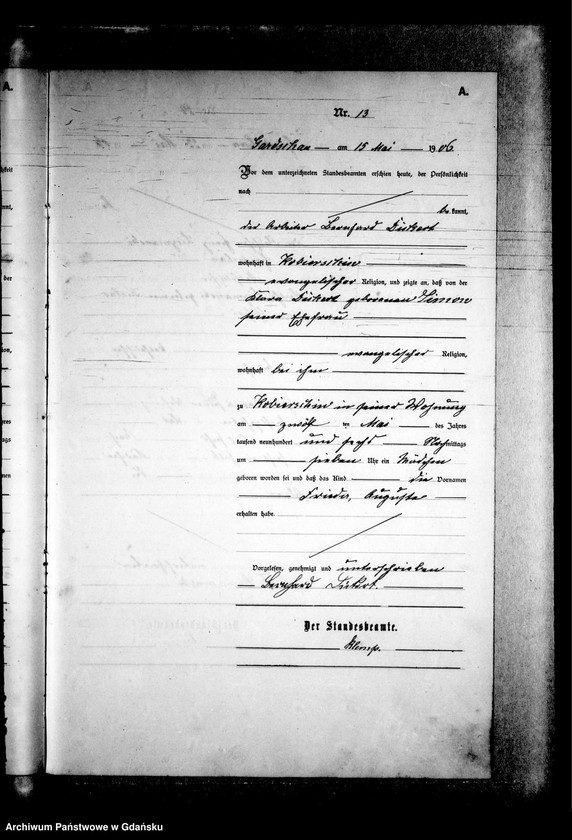 A.
A.
Nr. 13
Gardschau am 15 Mai 1906.
Vor dem unterzeichneten Standesbeamten erschien heute, der Persönlichkeit
nach
bekannt,
der Arbeiter Bernhard
wohnhaft in Kobierschin
evangelischer Religion, und zeigte an, daß von der
Klara geborenen Simon
seiner Ehefrau
evangelischer Religion,
wohnhaft bei ihm
zu Kobierschin in seiner Wohnung
am zwölf ten Mai des Jahres
tausend neunhundert und sechs Nachmittags
um sieben Uhr ein Mädchen
geboren worden sei und daß das Kind die Vornamen
Frieda, Auguste
erhalten habe.
Vorgelesen, genehmigt und unterschrieben
Bernhard
Der Standesbeamte.
Archiwum Państwowe w Gdańsku